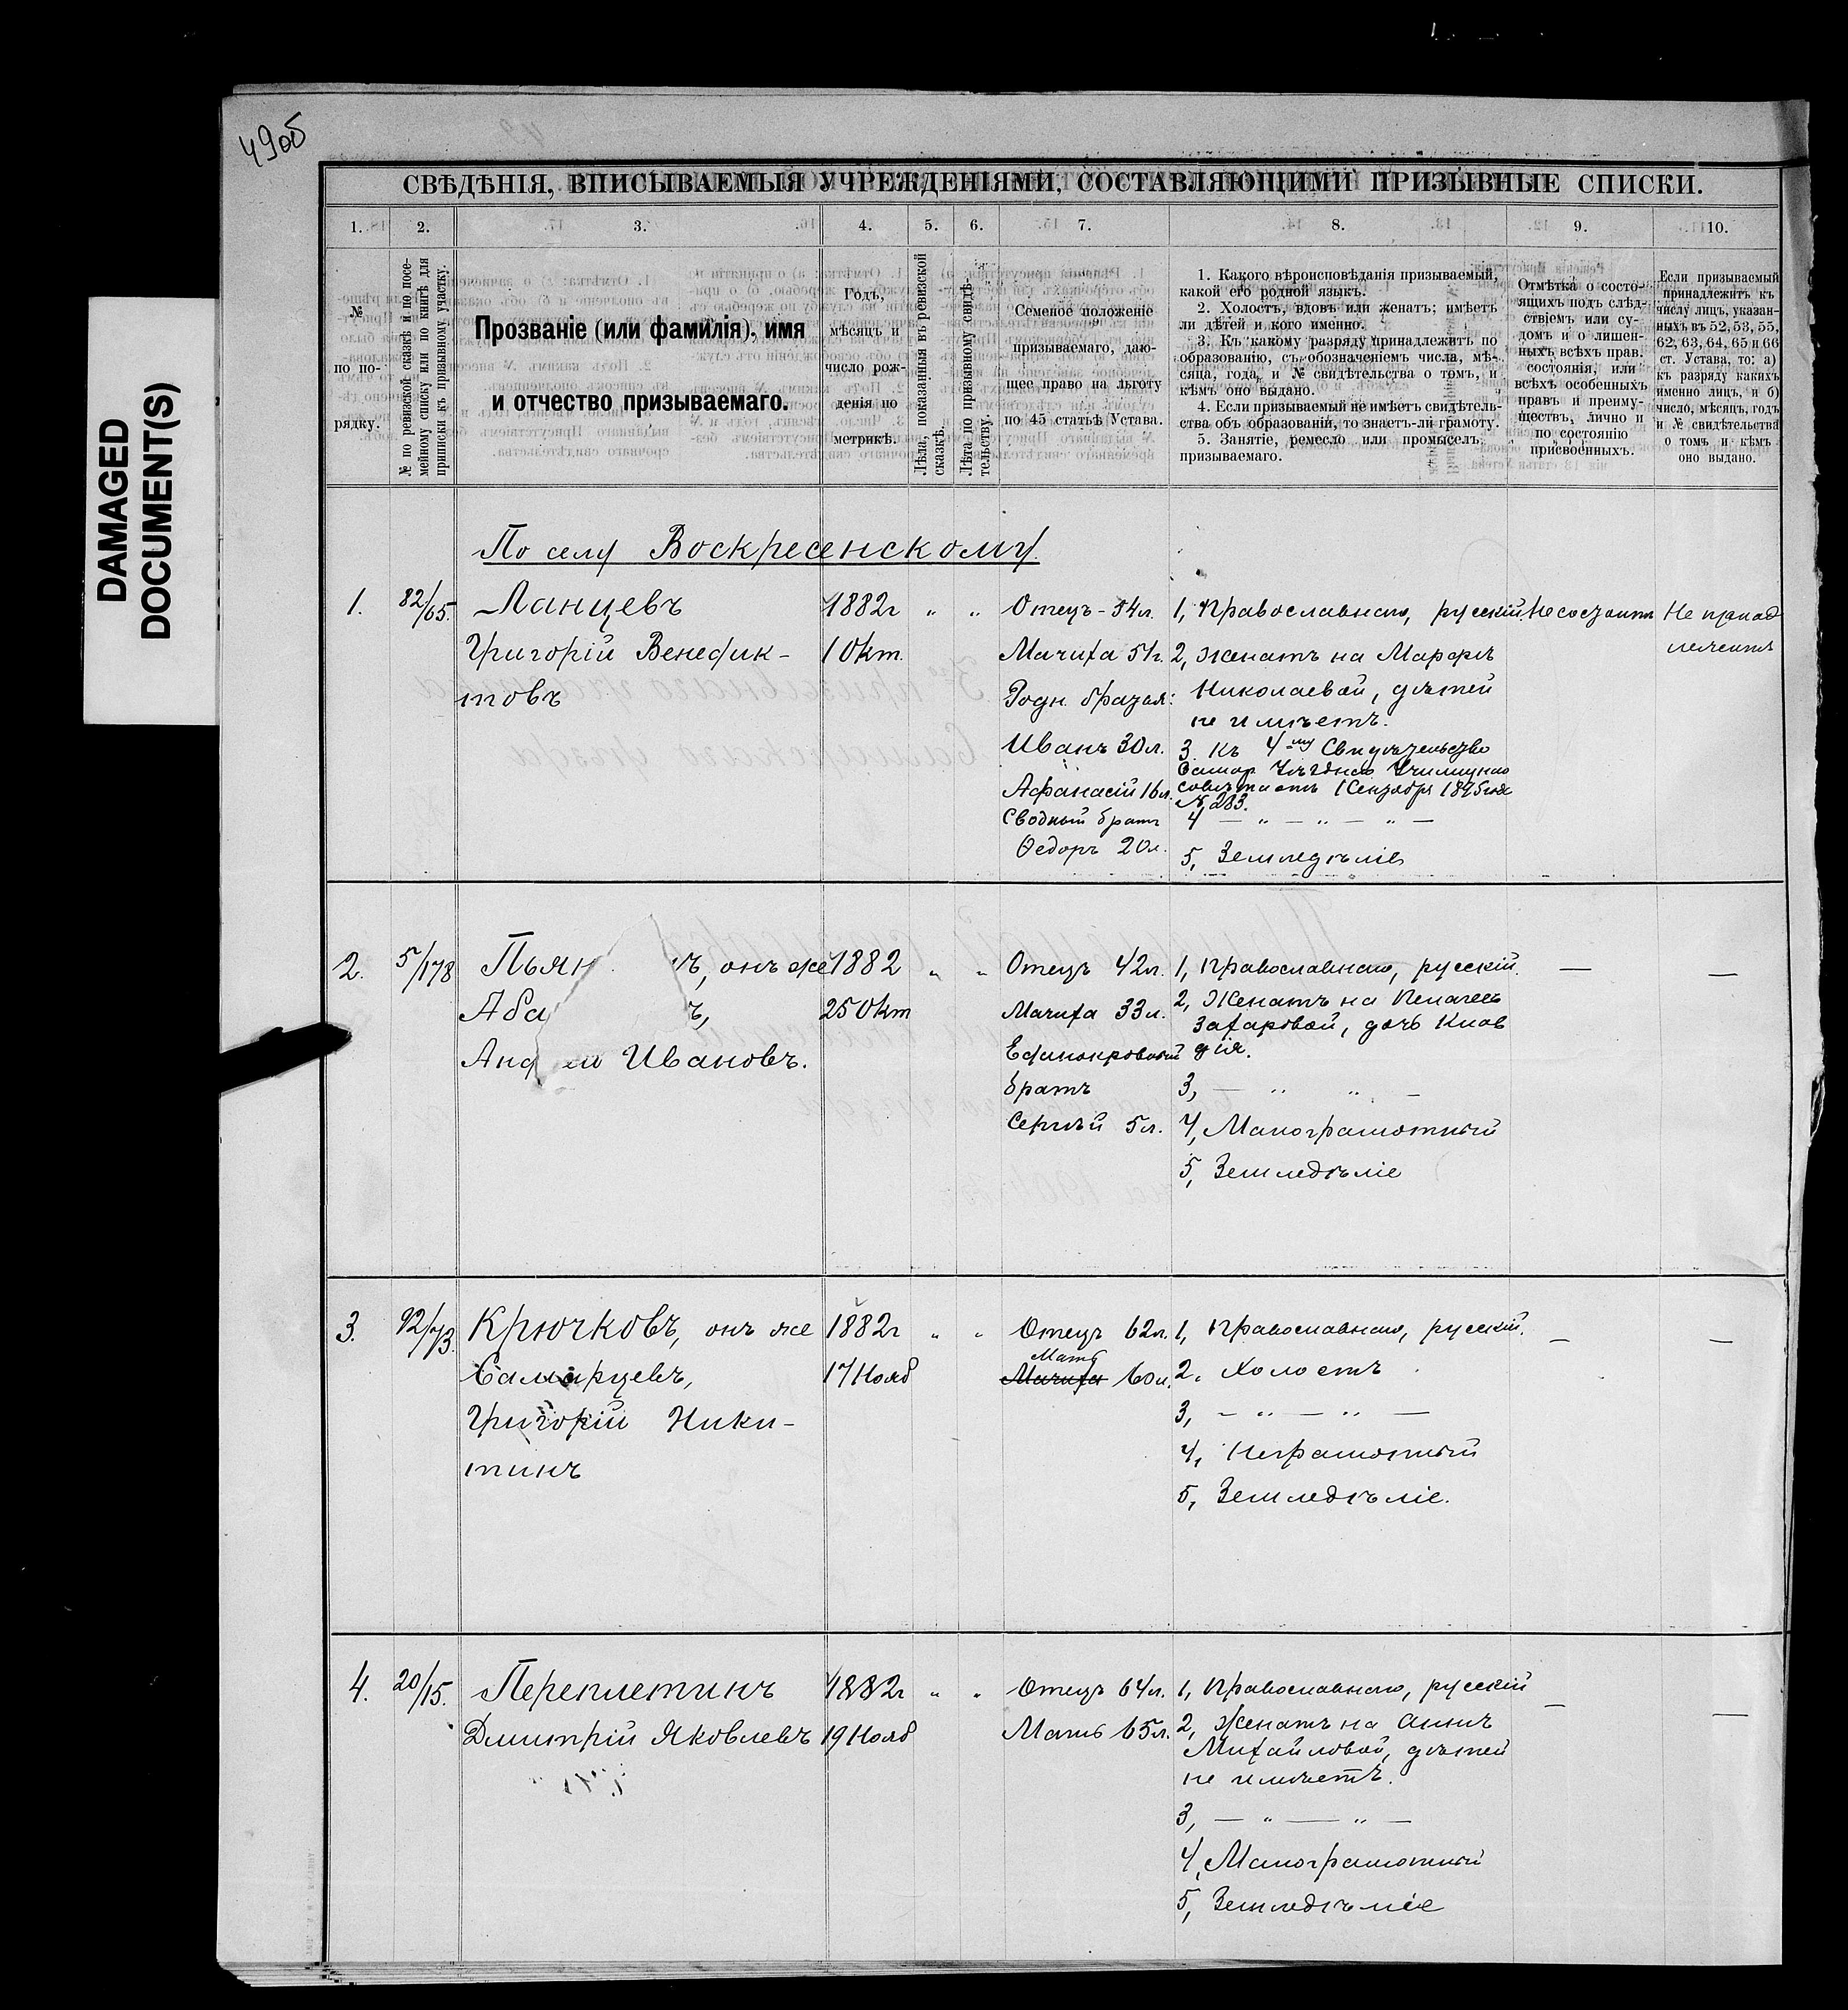 49об
DAMAGED
DOCUMENT(S)
СВѢДѢНІЯ, ВПИСЫВАЕМЫЯ УЧРЕЖДЕНІЯМИ, СОСТАВЛЯЮЩИМИ ПРИЗЫВНЫЕ СПИСКИ.
1. 2. 3. 4. 5. 6. 7. 8. 9. 10.
№
по по-
рядку.
№ по ревизской сказкѣ и по посе-
мейному списку или по книгѣ для
приписки къ призывному участку.
Прозваніе (или фамилія), имя
и отчество призываемаго.
Годъ,
мѣсяцъ и
число рож-
денія по
метрикѣ.
Лѣта, показанныя въ ревизской
сказкѣ.
Лѣта по призывному свидѣ-
тельству.
Семейное положеніе
призываемаго, даю-
щее право на льготу
по 45 статьѣ Устава.
1. Какого вѣроисповѣданія призываемый,
какой его родной языкъ.
2. Холостъ, вдовъ или женатъ; имѣетъ
ли дѣтей и кого именно.
3. Къ какому разряду принадлежитъ по
образованію, съ обозначеніемъ числа, мѣ-
сяца, года, и № свидѣтельства о томъ, и
кѣмъ оно выдано.
4. Если призываемый не имѣетъ свидѣтель-
ства объ образованіи, то знаетъ-ли грамоту.
5. Занятіе, ремесло или промыселъ
призываемаго.
Отмѣтка о состо-
ящихъ подъ слѣд-
ствіемъ или су-
домъ и о лишен-
ныхъ всѣхъ прав.
состоянія, или
всѣхъ особенныхъ
правъ и преиму-
ществъ, лично и
по состоянію
присвоенныхъ.
Если призываемый
принадлежитъ къ
числу лицъ, указан-
ныхъ въ 52, 53, 55,
62, 63, 64, 65 и 66
ст. Устава, то: а)
къ разряду какихъ
именно лицъ, и б)
число, мѣсяцъ, годъ
и № свидѣтельства
о томъ и кѣмъ
оно выдано.
По селу Воскресенскому.
1. 82/65. Ланцевъ
Григорій Венедик-
товъ
1882г " "
1 Окт.
Отецъ - 54л.
Мачиха 51г.
Родн. братья:
Иванъ 30л.
Афанасій 16л.
Сводный братъ
Ѳедоръ 20л.
1, Православнаго, русскій.
2, Женатъ на Марфѣ
Николаевой, дѣтей
не имѣетъ.
3. Къ 4му Свидѣтельство
Самар Уѣзднаго Училищнаго
Совѣта отъ 1 Сентября 1895 года
№ 283.
4 — " — " — " —
5, Земледѣліе
Не состоитъ
Не принад
лежитъ
2. 5/178 Пьян ъ, онъ же
Аба ъ,
Анд Ивановъ.
1882 " "
25 Окт
Отецъ 42л.
Мачиха 33л.
Единокровный
братъ
Сергѣй 5л.
1, Православнаго, русскій.
2, Женатъ на Пелагеѣ
Захаровой, дочь Клав
дія.
3, — " " —
4, Малограмотный
5, Земледѣліе
— —
3. 92/73. Крючковъ, онъ же
Самарцевъ,
Григорій Ники-
тинъ
1882г " "
17 Нояб
Отецъ 62л.
Мать
Мачиха 60л.
1, Православнаго, русскій.
2. Холостъ
3, — " — " —
4, Неграмотный
5, Земледѣліе.
— —
4. 20/15. Переплетинъ
Дмитрій Яковлевъ
1882г " "
19 Нояб
Отецъ 64л.
Мать 65л.
1, Православнаго, русскій
2, Женатъ на Аннѣ
Михайловой, дѣтей
не имѣетъ.
3, — " — " —
4, Малограмотный
5, Земледѣліе
— —